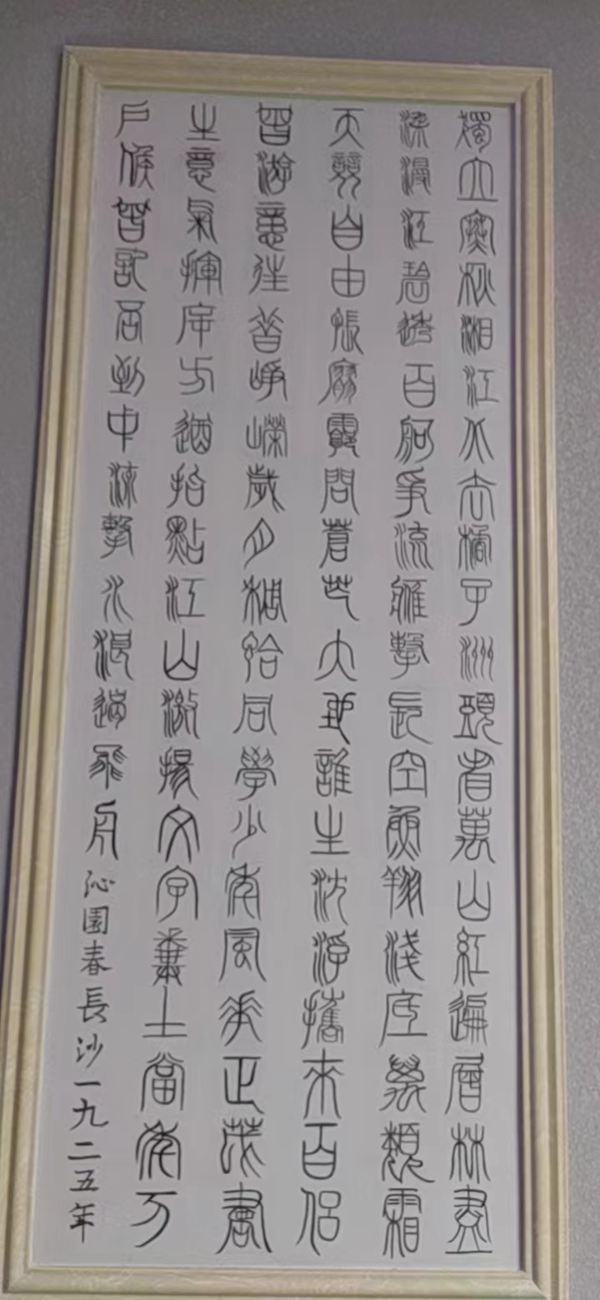 獨立寒秋湘江北去橘子洲頭看萬山紅遍層林盡
染漫江碧透百舸爭流鷹擊長空魚翔淺底萬類霜
天競自由悵寥廓問蒼茫大地誰主沈浮攜來百侶
曾游憶往昔崢嶸歲月稠恰同學少年風華正茂書
生意氣揮斥方遒指點江山激揚文字糞土當年万
戶侯曾記否到中流擊水浪遏飛舟沁園春長沙一九二五年